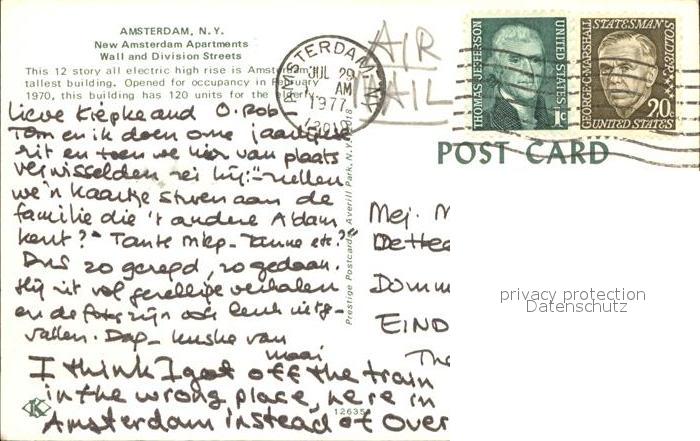 AMSTERDAM, N. Y.
New Amsterdam Apartments
Wall and Division Streets
This 12 story all electric high rise is Amsterdam's
tallest building. Opened for occupancy in February
1970, this building has 120 units for the elderly
AMSTERDAM, NY
JUL 29
AM
1977
12010
AIR
MAIL
THOMAS JEFFERSON
UNITED STATES
1c
GEORGE C. MARSHALL
STATESMAN
SOLDIER
20c
UNITED STATES
POST CARD
Lieve Kiepke and O. Rob
Tom en ik doen ons jaarlijkse
rit en toen we hier van plaats
verwisselden zei hij: "zullen
we 'n kaartje sturen aan de
familie die 't andere A'dam
kent?" Tante Miep - Tanne etc?"
Dus zo gezegd, zo gedaan.
Hij zit vol gezellige verhalen
en de foto's zijn ook leuk uitge-
vallen. Dag - kuske van
maai
I think I got off the train
in the wrong place, here in
Amsterdam instead of Over
Prestige Postcards, Averill Park, N.Y. 12018
Mej. M
De Hee
Domm
EIND
The
K
126358
privacy protection
Datenschutz